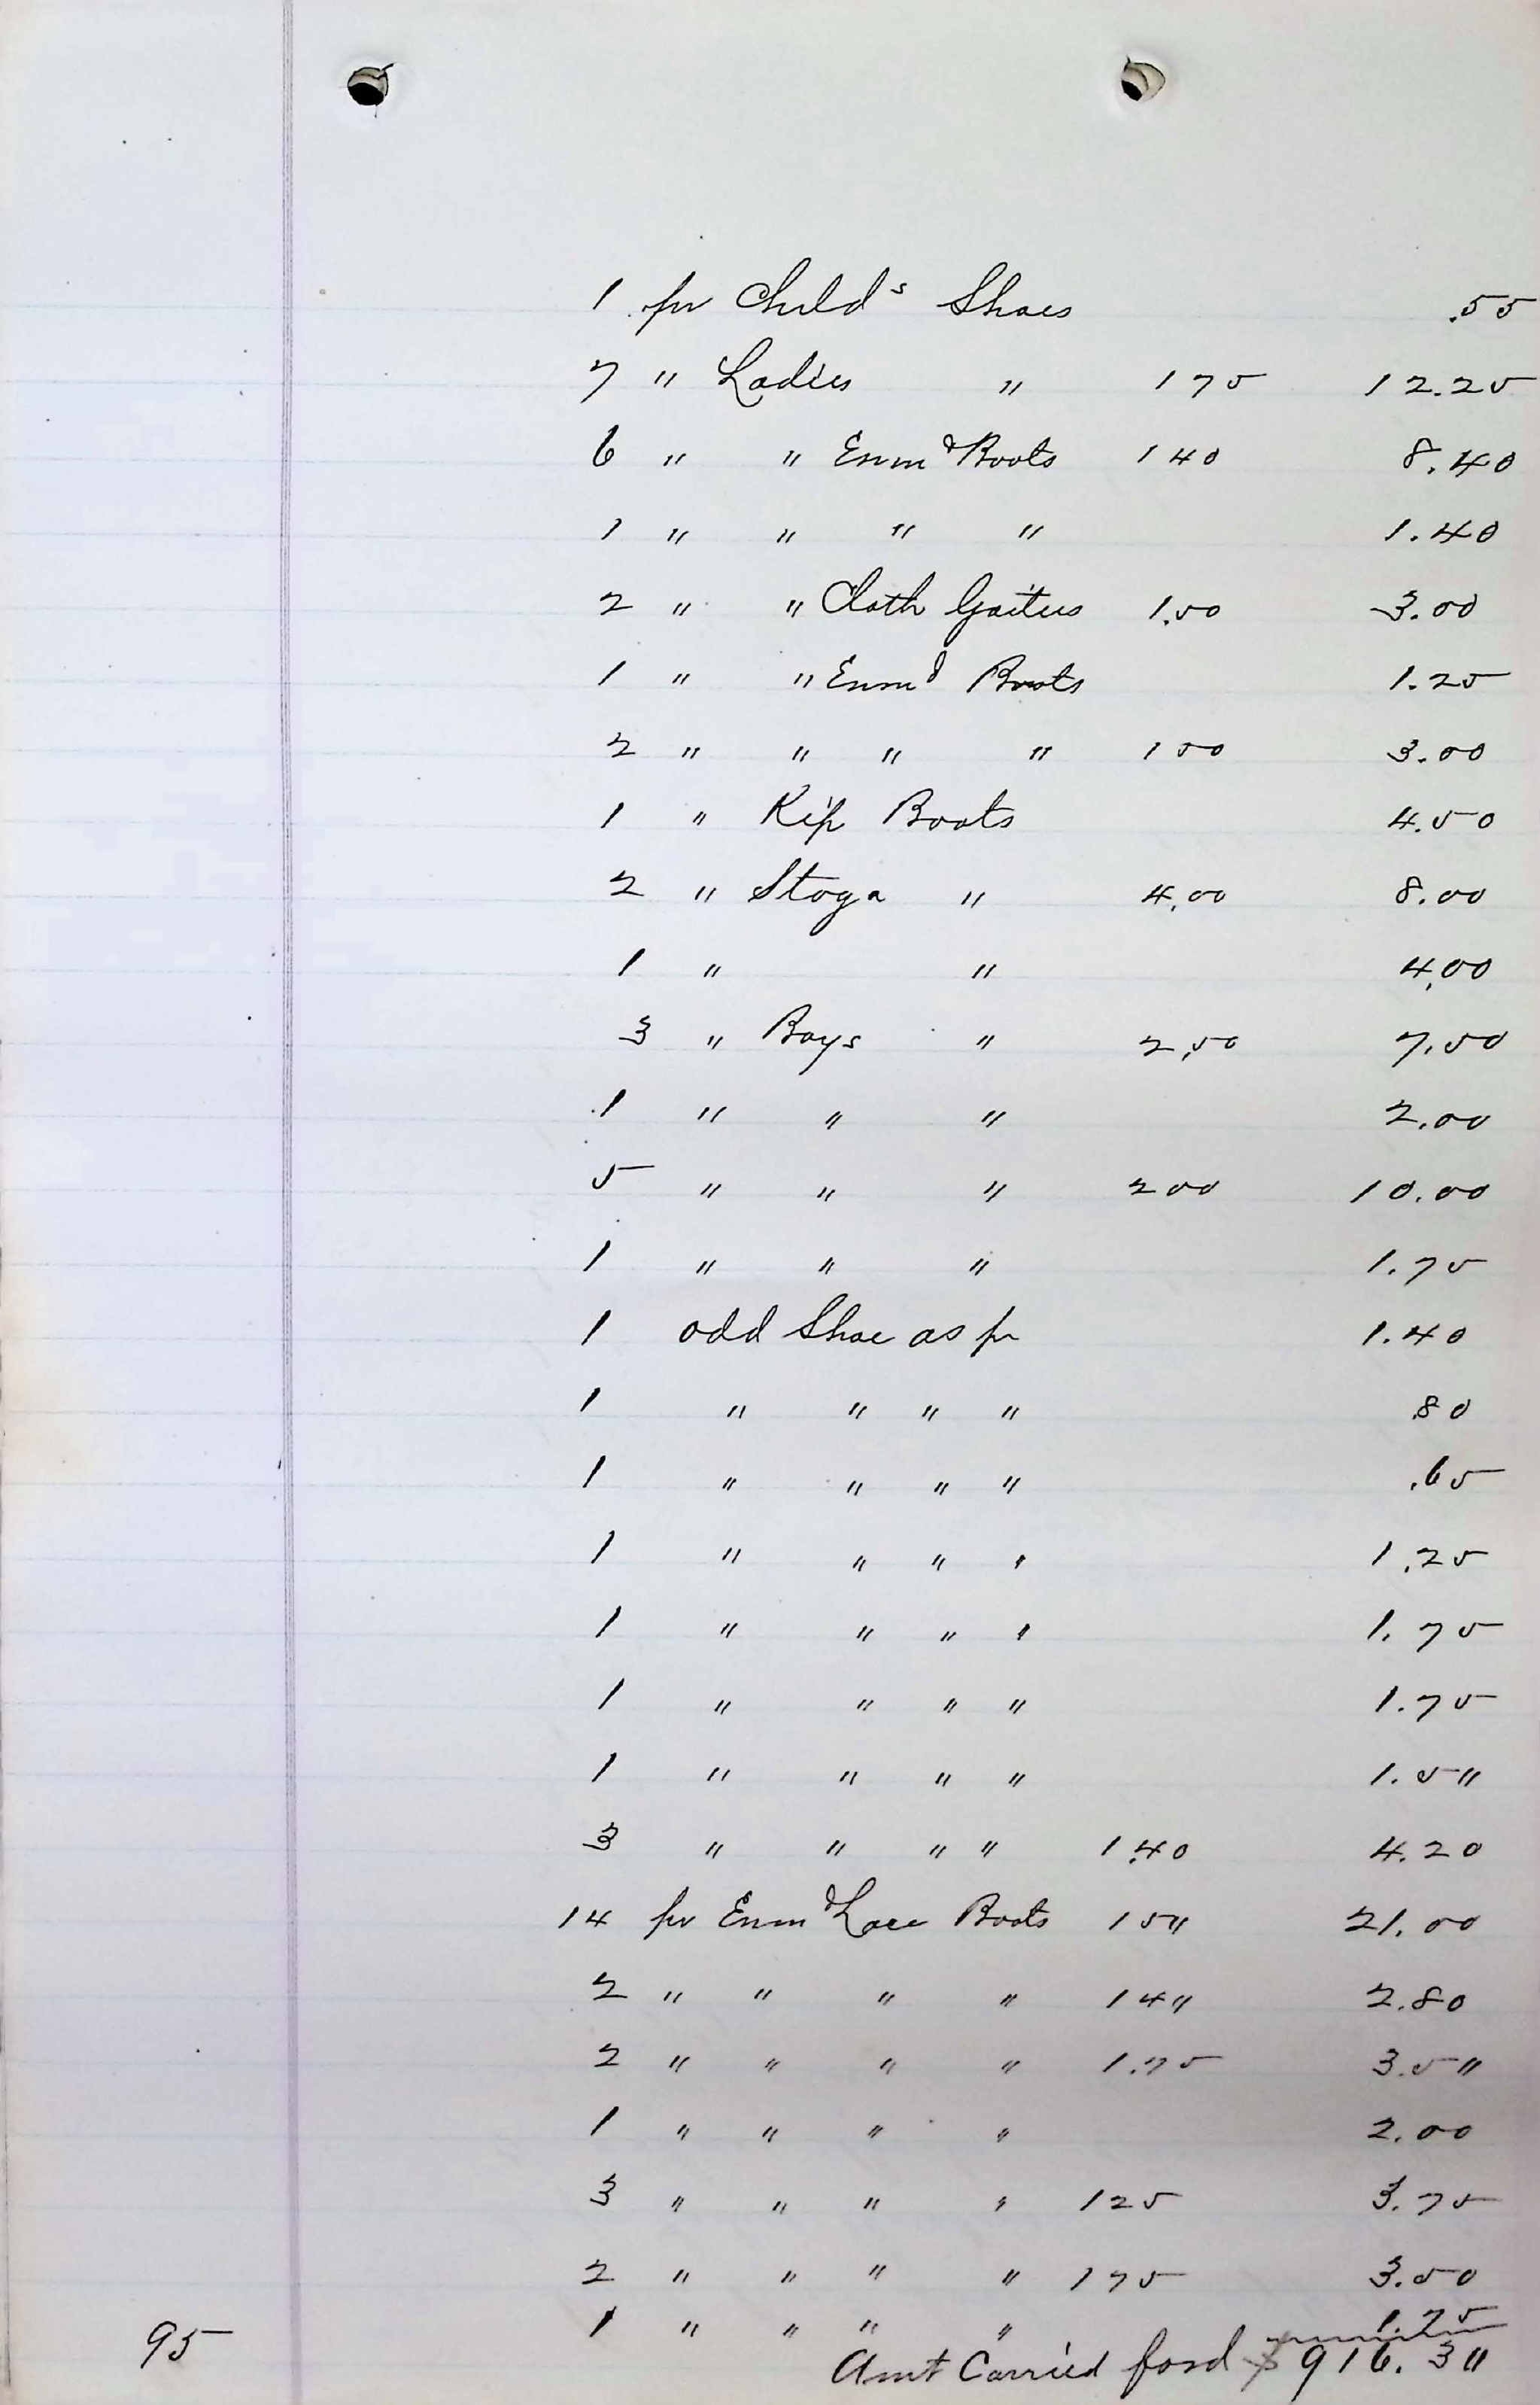 1 pr Child's Shoes .55
7 " Ladies " 175 12.25
6 " " Enmd Boots 140 8.40
1 " " " " 1.40
2 " " Cloth Gaiters 1.50 3.00
1 " " Enmd Boots 1.25
2 " " " " 150 3.00
1 " Kip Boots 4.50
2 " Stoga " 4.00 8.00
1 " " 4.00
3 " Boys " 2.50 7.50
1 " " " 2.00
5 " " " 200 10.00
1 " " " 1.75
1 odd Shoe as pr 1.40
1 " " " " .80
1 " " " " .65
1 " " " " 1.25
1 " " " " 1.75
1 " " " " 1.75
1 " " " " 1.5"
3 " " " " 1.40 4.20
14 pr Enmd Lace Boots 15" 21.00
2 " " " " 14" 2.80
2 " " " " 1.75 3.5"
1 " " " " 2.00
3 " " " " 125 3.75
2 " " " " 175 3.50
1 " " " " 1.25
95 Amt Carried ford $916.3"